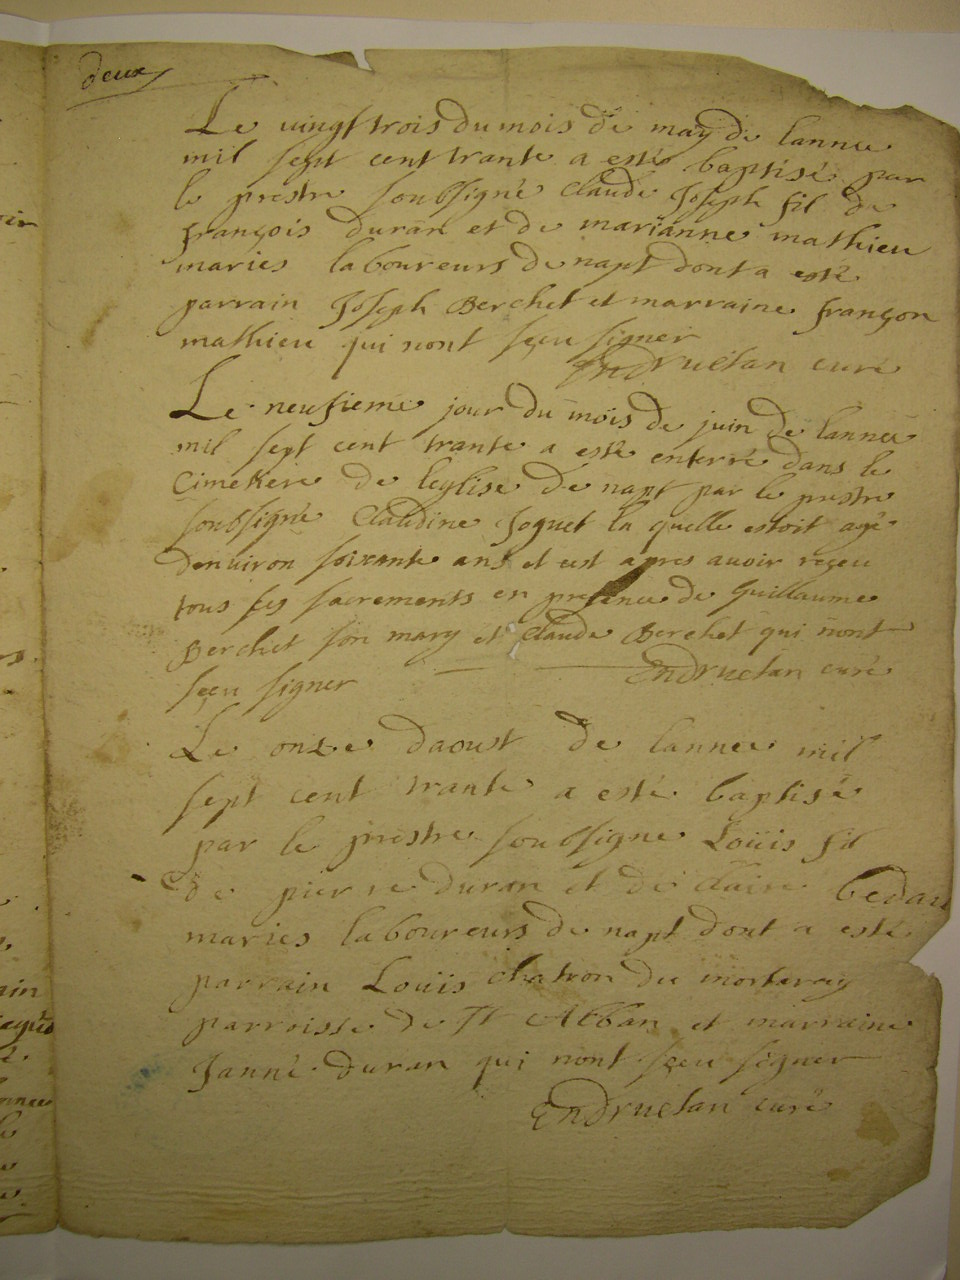 deux
Le vingt trois du mois de may de lannee
mil sept cent trante a esté baptisé par
le prestre soubsigné Claude Joseph fil de
françois duran et de marianne mathieu
maries laboureurs de napt dont a esté
parrain Joseph Berchet et marraine françon
mathieu qui nont sçeu signer
Endruetan curé
Le neufieme jour du mois de juin de lannee
mil sept cent trante a esté enterré dans le
Cimetiere de leglise de napt par le prestre
soubsigné Claudine Joguet la quelle estoit agé
denviron soixante ans et est apres avoir reçeu
tous ses sacrements en presence de Guillaume
Berchet son mary et Claude Berchet qui nont
sçeu signer Endruetan curé
Le onze daoust de lannee mil
sept cent trante a esté baptisé
par le prestre soubsigne Louïs fil
de pierre duran et de claire bedau
maries laboureurs de napt dont a esté
parrain Louïs chatron du mortaray
parroisse de St Alban et marraine
Janne duran qui nont sçeu signer
Endruetan curé